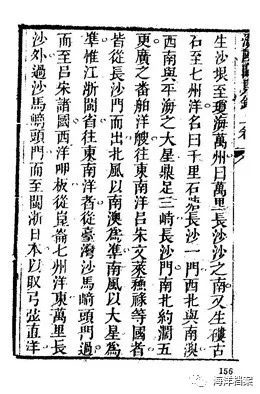 海國聞見錄 上卷
生沙垠至瓊海萬州曰萬里長沙沙之南又生嘍古
石至七州洋名曰千里石塘長沙一門西北與南澳
西南與平海之大星鼎足三峙長沙門南北約濶五
更廣之番舶洋艘往東南洋呂宋文萊穌祿等國者
皆從長沙門而出北風以南澳為準南風以大星為
準惟江浙閩省往東南洋者從臺灣沙馬崎頭門過
而至呂宋諸國西洋呷板從崑崙七州洋東萬里長
沙外過沙馬崎頭門而至閩浙日本以取弓弦直洋
156
海洋档案